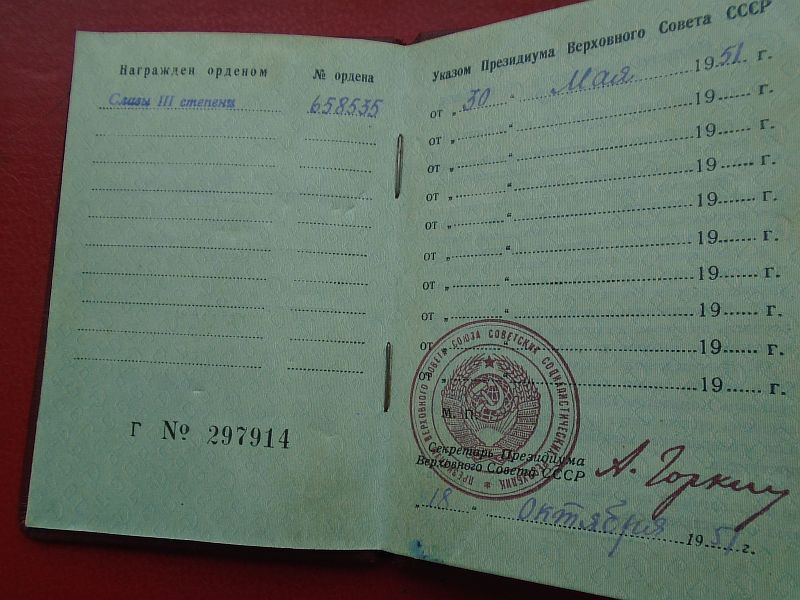 Награжден орденом
№ ордена
Славы III степени
658535
Г № 297914
Указом Президиума Верховного Совета СССР
от „ 30 “ Мая 1951 г.
от „ “ 19 г.
от „ “ 19 г.
от „ “ 19 г.
от „ “ 19 г.
от „ “ 19 г.
от „ “ 19 г.
от „ “ 19 г.
от „ “ 19 г.
от 19 г.
М. П.
Секретарь Президиума
Верховного Совета СССР
А. Горкин
„ 18 “ Октября 1951 г.
ПРЕЗИДИУМ ВЕРХОВНОГО СОВЕТА СОЮЗА СОВЕТСКИХ СОЦИАЛИСТИЧЕСКИХ РЕСПУБЛИК